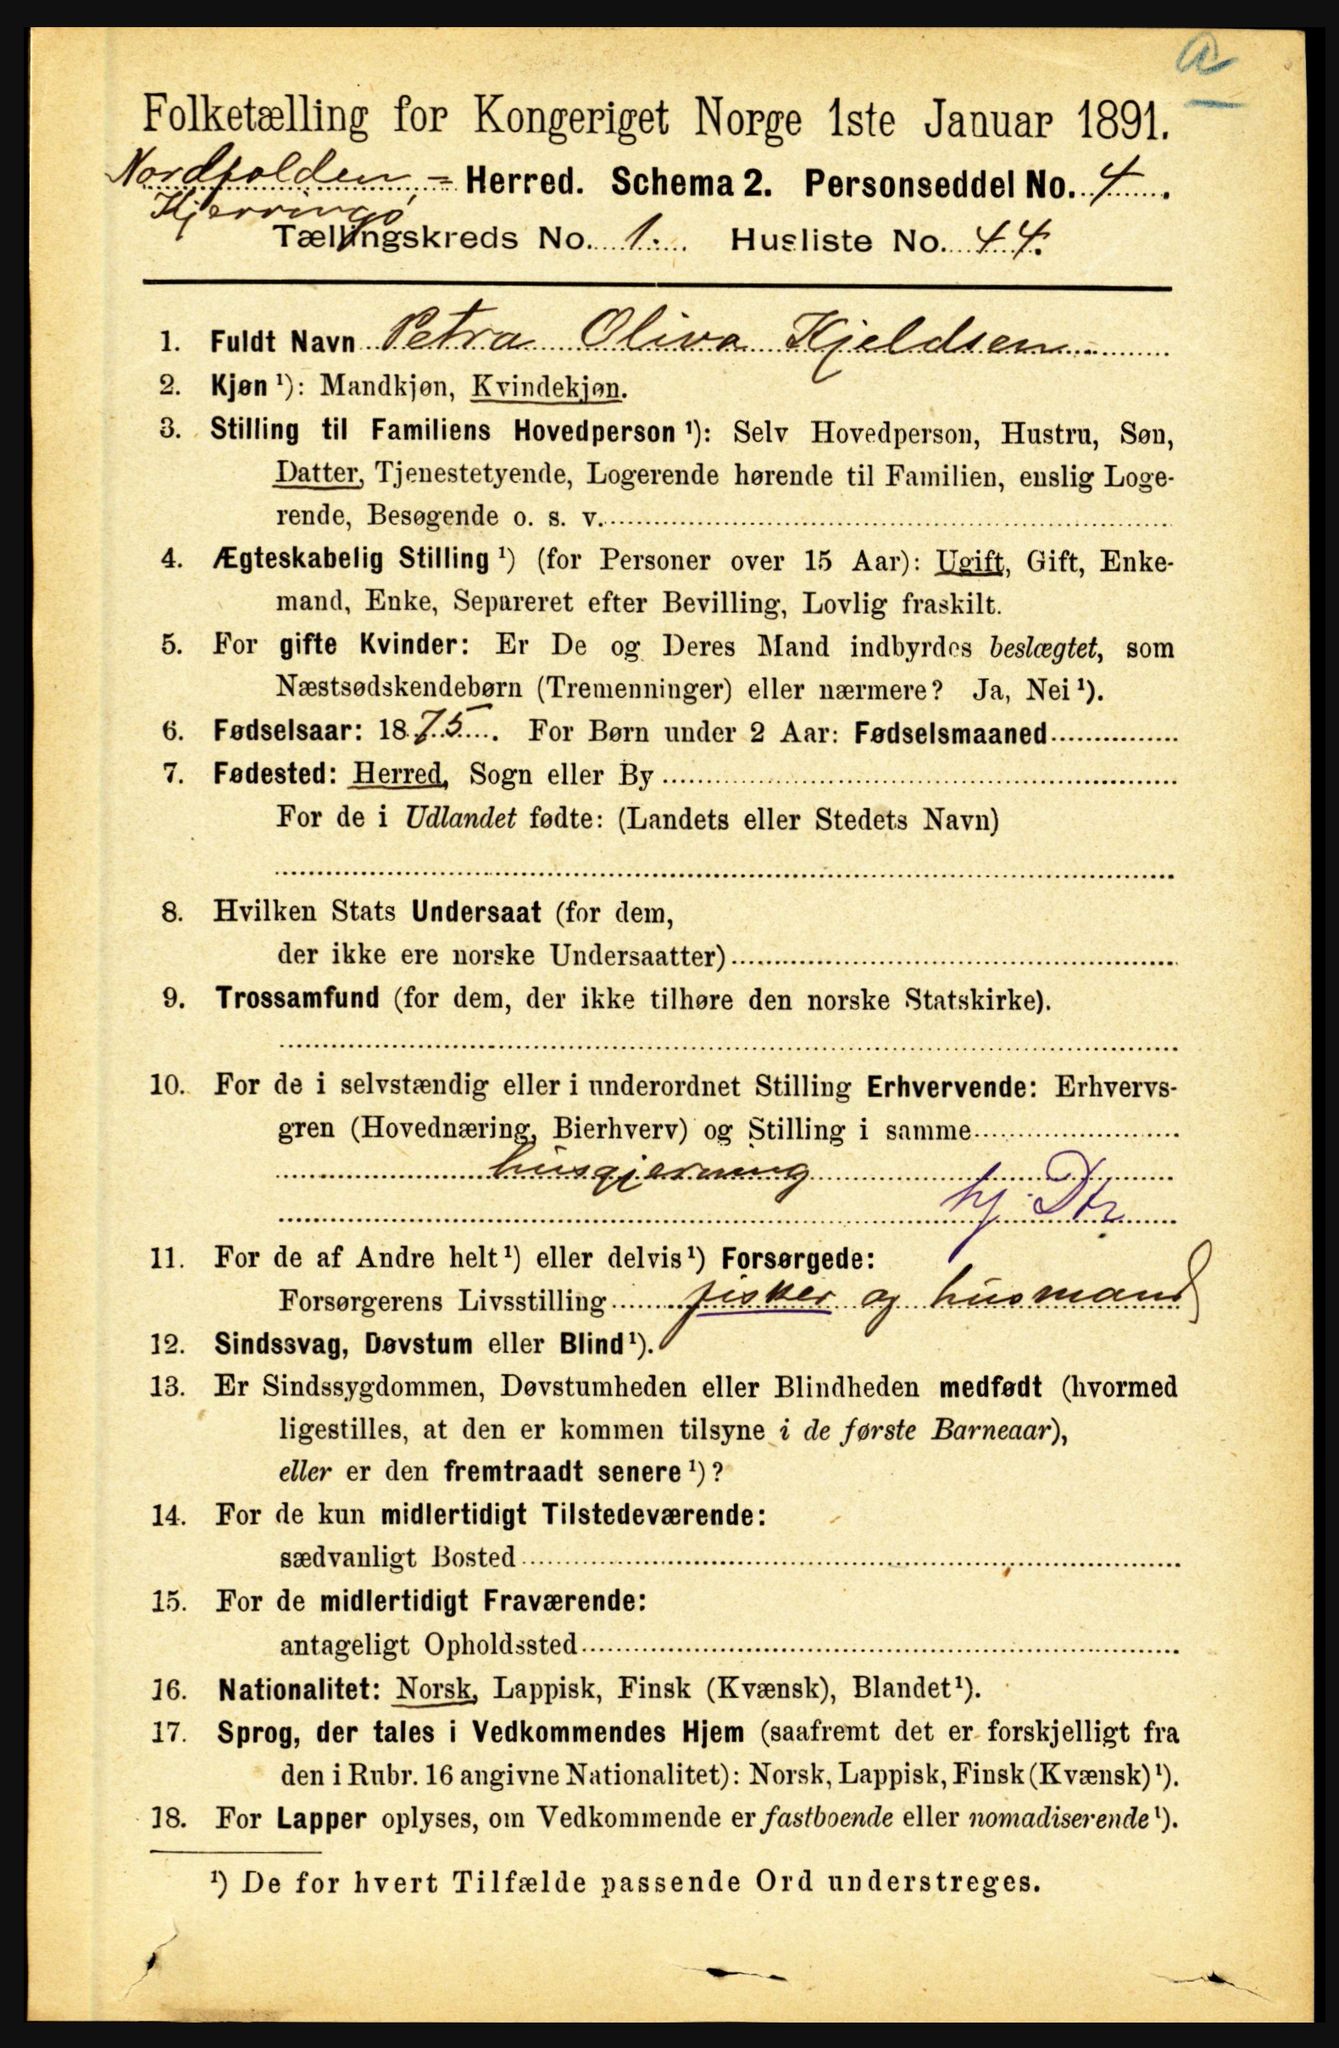 a
Folketælling for Kongeriget Norge 1ste Januar 1891.
Nordfolden - Herred. Schema 2. Personseddel No. 4.
Kjerringø
Tællingskreds No. 1. Husliste No. 44.
1. Fuldt Navn Petra Oliva Kjeldsen
2. Kjøn ¹): Mandkjøn, Kvindekjøn.
3. Stilling til Familiens Hovedperson ¹): Selv Hovedperson, Hustru, Søn,
Datter, Tjenestetyende, Logerende hørende til Familien, enslig Loge-
rende, Besøgende o. s. v.
4. Ægteskabelig Stilling ¹) (for Personer over 15 Aar): Ugift, Gift, Enke-
mand, Enke, Separeret efter Bevilling, Lovlig fraskilt.
5. For gifte Kvinder: Er De og Deres Mand indbyrdes beslægtet, som
Næstsødskendebørn (Tremenninger) eller nærmere? Ja, Nei ¹).
6. Fødselsaar: 1875. For Børn under 2 Aar: Fødselsmaaned
7. Fødested: Herred, Sogn eller By
For de i Udlandet fødte: (Landets eller Stedets Navn)
8. Hvilken Stats Undersaat (for dem,
der ikke ere norske Undersaatter)
9. Trossamfund (for dem, der ikke tilhøre den norske Statskirke).
10. For de i selvstændig eller i underordnet Stilling Erhvervende: Erhvervs-
gren (Hovednæring, Bierhverv) og Stilling i samme
husgjerning
hj. Dtr
11. For de af Andre helt ¹) eller delvis ¹) Forsørgede:
Forsørgerens Livsstilling fisker og husmand
12. Sindssvag, Døvstum eller Blind ¹).
13. Er Sindssygdommen, Døvstumheden eller Blindheden medfødt (hvormed
ligestilles, at den er kommen tilsyne i de første Barneaar),
eller er den fremtraadt senere ¹)?
14. For de kun midlertidigt Tilstedeværende:
sædvanligt Bosted
15. For de midlertidigt Fraværende:
antageligt Opholdssted
16. Nationalitet: Norsk, Lappisk, Finsk (Kvænsk), Blandet ¹).
17. Sprog, der tales i Vedkommendes Hjem (saafremt det er forskjelligt fra
den i Rubr. 16 angivne Nationalitet): Norsk, Lappisk, Finsk (Kvænsk) ¹).
18. For Lapper oplyses, om Vedkommende er fastboende eller nomadiserende ¹).
¹) De for hvert Tilfælde passende Ord understreges.